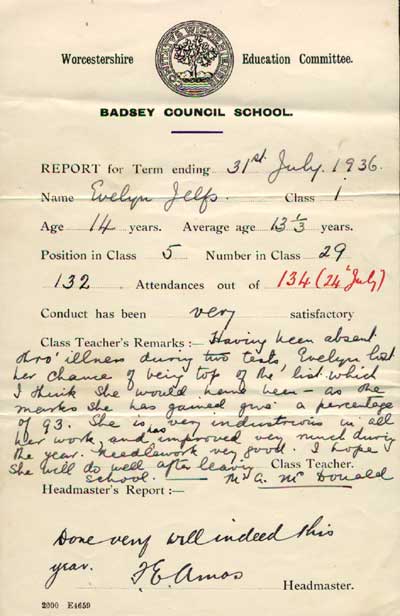 Worcestershire Education Committee.
BADSEY COUNCIL SCHOOL.
REPORT for Term ending 31st July. 1936.
Name Evelyn Jelfs. Class 1
Age 14 years. Average age 13 1/3 years.
Position in Class 5 Number in Class 29
132 Attendances out of 134 (24th July)
Conduct has been very satisfactory
Class Teacher's Remarks :— Having been absent
thro' illness during two tests, Evelyn lost
her chance of being top of the list which
I think she would have been — as the
marks she has gained give a percentage
of 93. She is very industrious in all
her work, and has improved very much during
the year. Needlework very good. I hope
she will do well after leaving Class Teacher.
school. M. A. Mc Donald
Headmaster's Report :—
Done very well indeed this
year. F.E. Amos
Headmaster.
2000 E4659